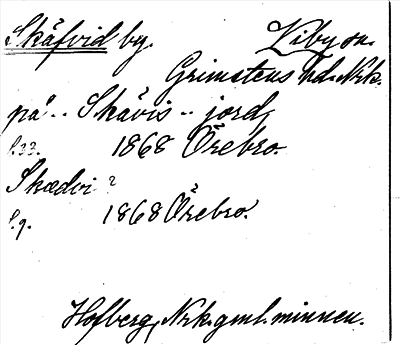 Skäfvid by. Viby sn.
Grimstens hd. Nrk.
på .. Skävis .. jord,
s. 33. 1868 Örebro.
Skædvi ?
s. 9. 1868 Örebro.
Hofberg, Nrk. gml. minnen.